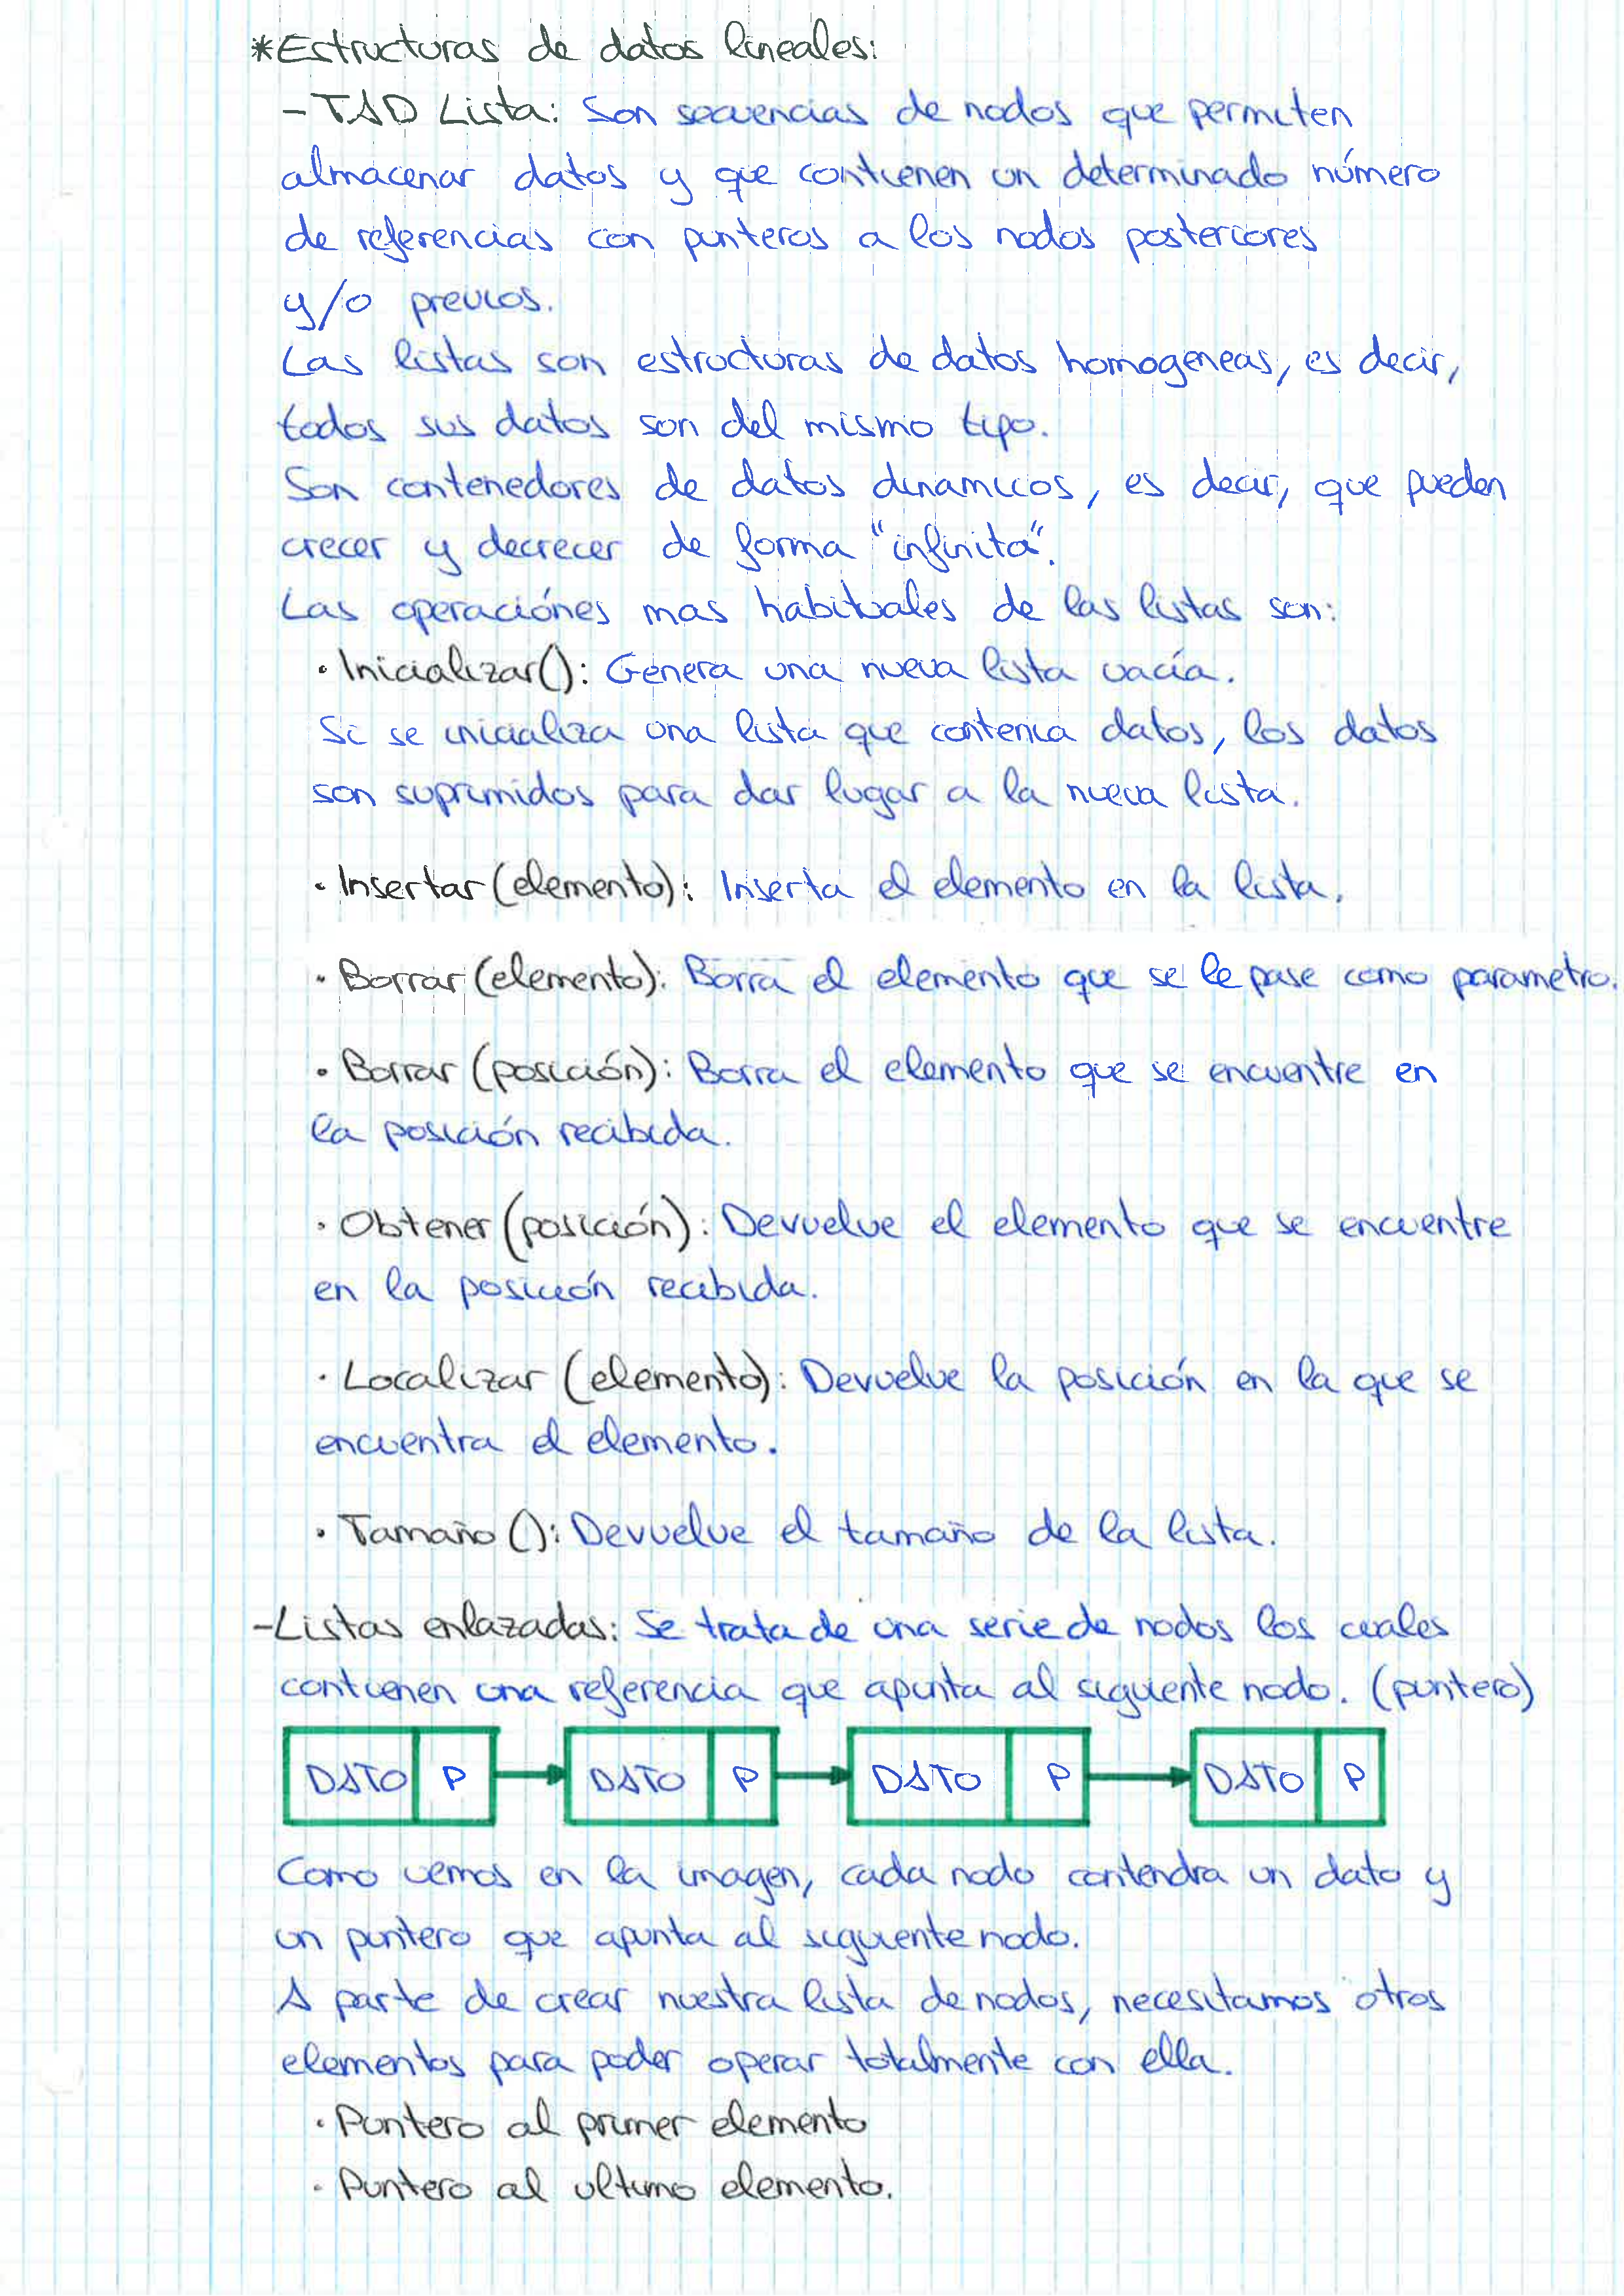 *Estructuras de datos lineales:
-TAD Lista: Son secuencias de nodos que permiten
almacenar datos y que contienen un determinado número
de referencias con punteros a los nodos posteriores
y/o previos.
Las listas son estructuras de datos homogeneas, es decir,
todos sus datos son del mismo tipo.
Son contenedores de datos dinamicos, es decir, que pueden
crecer y decrecer de forma "infinita".
Las operaciónes mas habituales de las listas son:
· Inicializar(): Genera una nueva lista vacía.
Si se inicializa una lista que contenia datos, los datos
son suprimidos para dar lugar a la nueva lista.
· Insertar (elemento): Inserta el elemento en la lista.
· Borrar (elemento): Borra el elemento que se le pase como parametro.
· Borrar (posición): Borra el elemento que se encuentre en
la posición recibida.
· Obtener (posición): Devuelve el elemento que se encuentre
en la posición recibida.
· Localizar (elemento): Devuelve la posición en la que se
encuentra el elemento.
· Tamaño (): Devuelve el tamaño de la lista.
-Listas enlazadas: Se trata de una serie de nodos los cuales
contienen una referencia que apunta al siguiente nodo. (puntero)
DATO P DATO P DATO P DATO P
Como vemos en la imagen, cada nodo contendra un dato y
un puntero que apunta al siguiente nodo.
A parte de crear nuestra lista de nodos, necesitamos otros
elementos para poder operar totalmente con ella.
· Puntero al primer elemento
· Puntero al ultimo elemento.